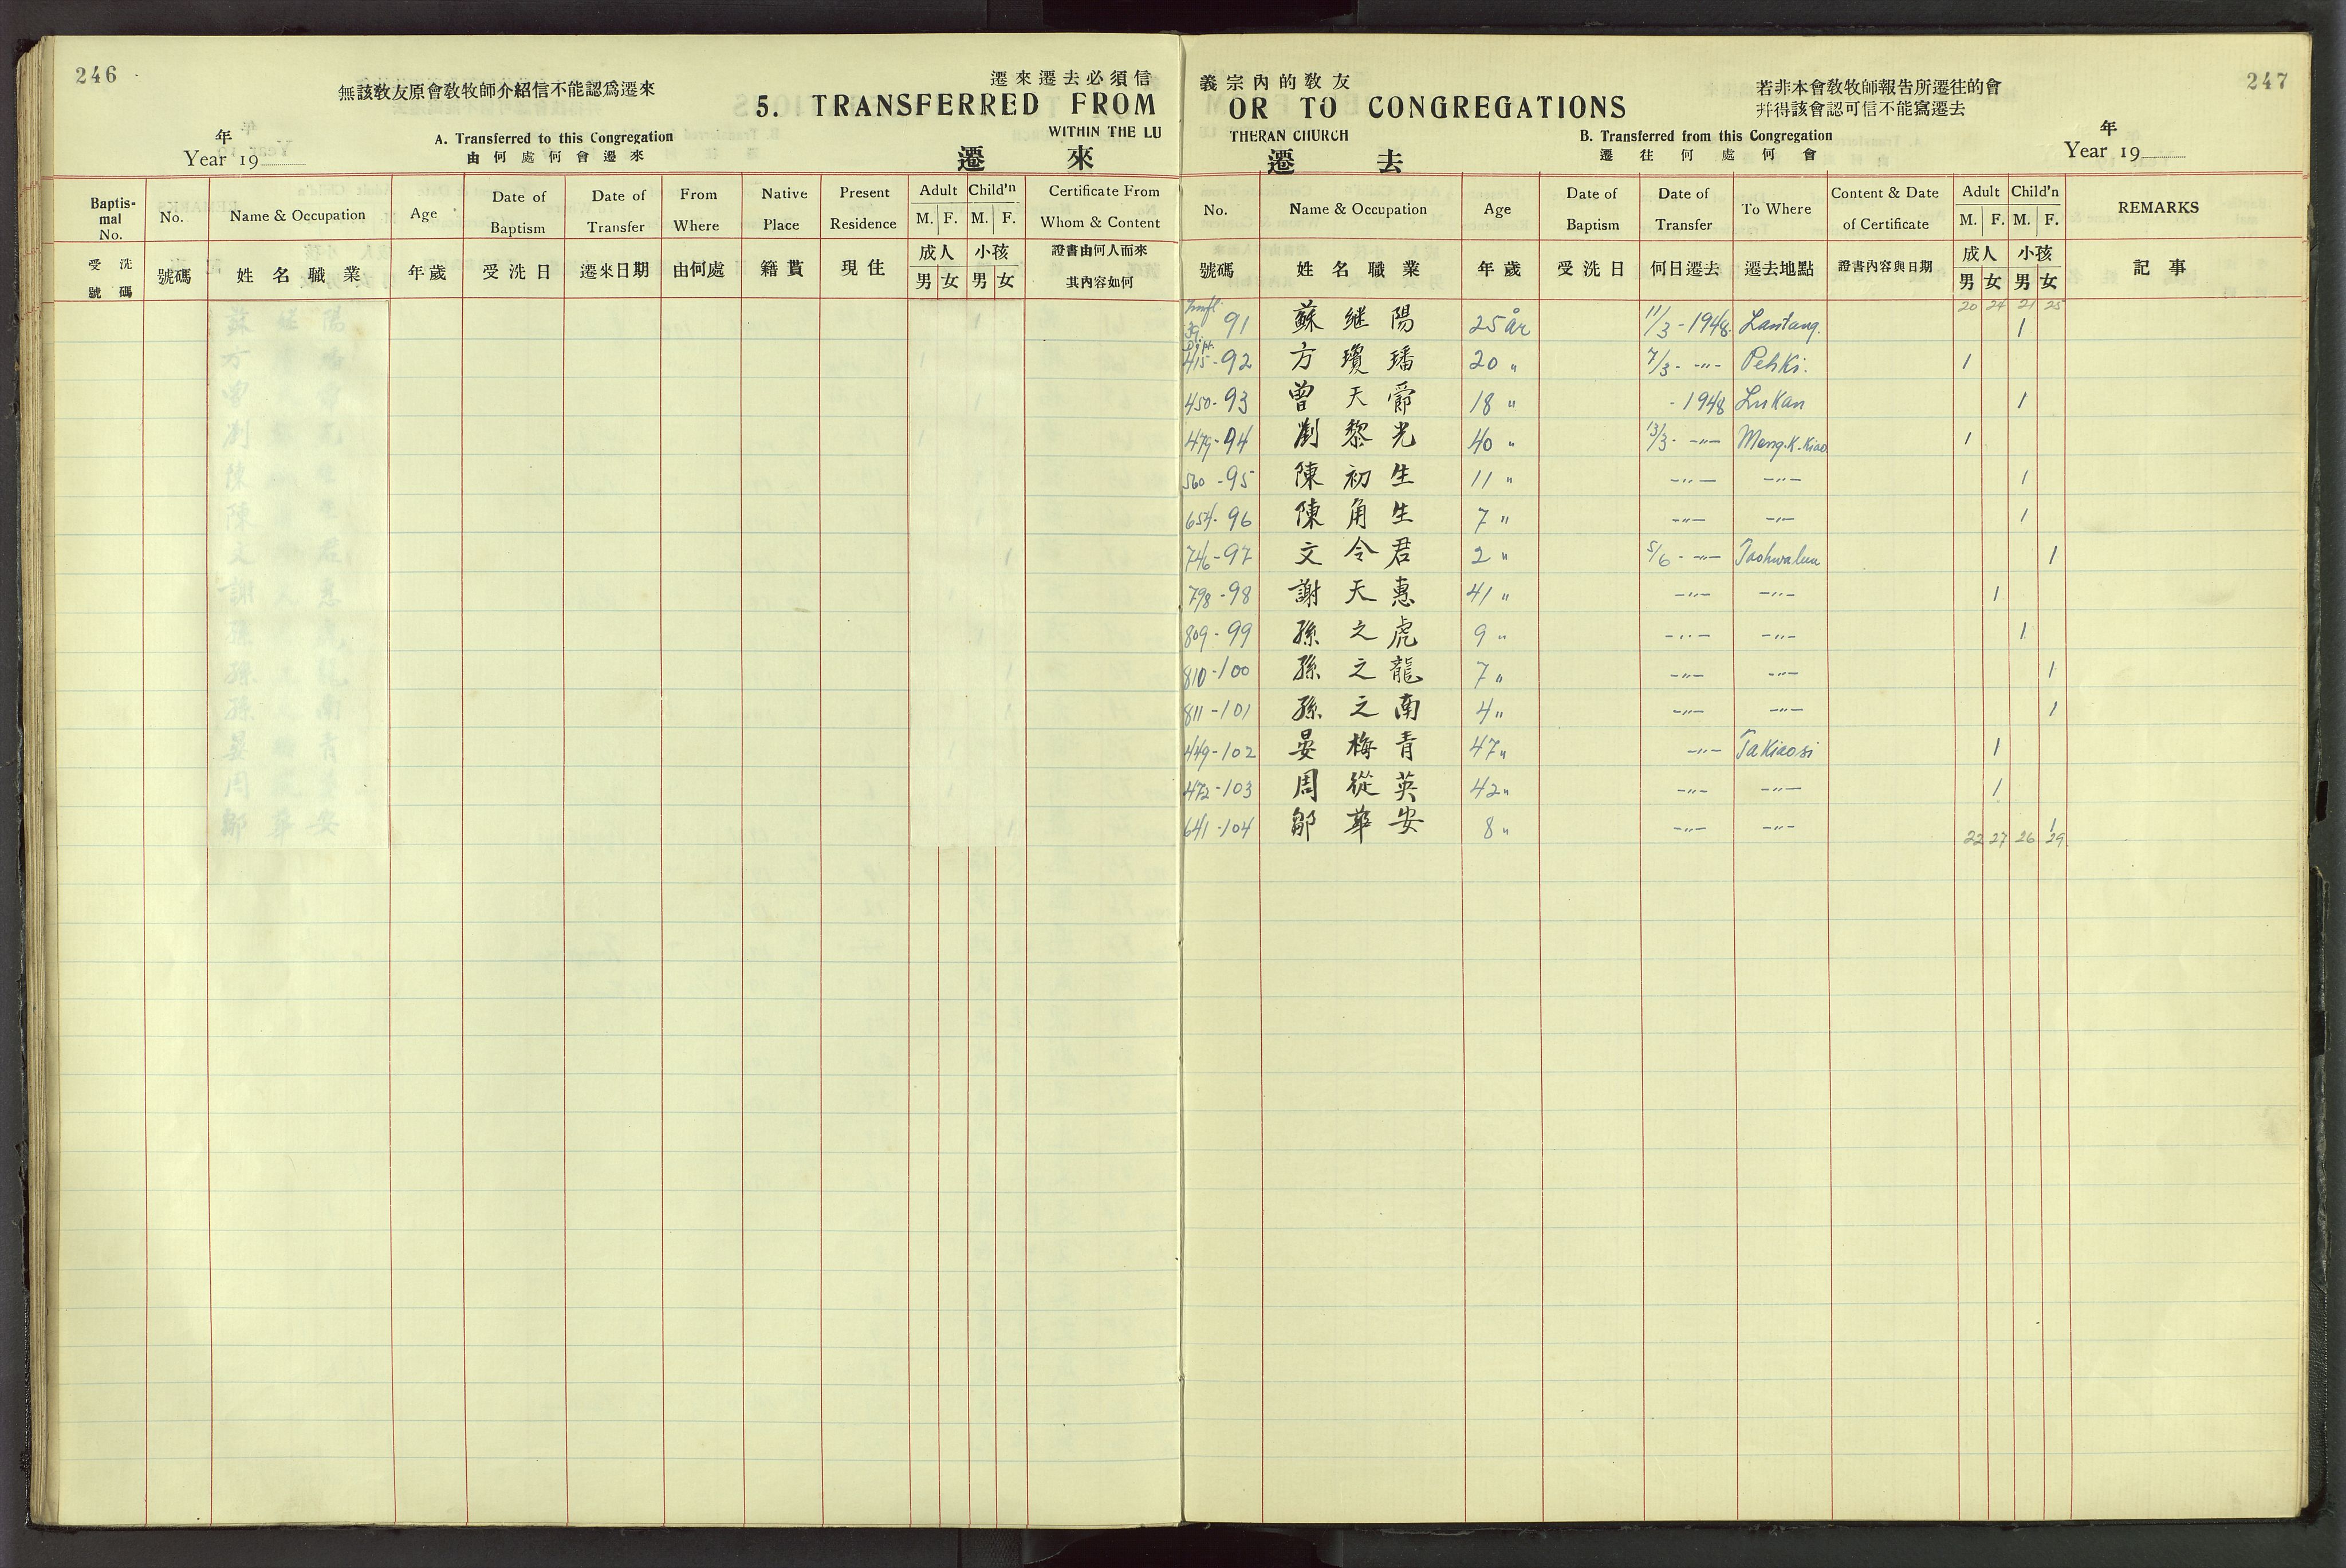 246
無該敎友原會敎牧師介紹信不能認爲遷來
遷來遷去必須信
5. TRANSFERRED FROM
年
A. Transferred to this Congregation
WITHIN THE LU
Year 19
由何處何會遷來
遷 來
Baptismal No. No. Name & Occupation Age Date of Baptism Date of Transfer From Where Native Place Present Residence Adult M. F. Child'n M. F. Certificate From Whom & Content
受洗號碼 號碼 姓名職業 年歲 受洗日 遷來日期 由何處 籍貫 現住 成人 男 女 小孩 男 女 證書由何人而來 其內容如何
247
義宗內的敎友
若非本會敎牧師報告所遷往的會
幷得該會認可信不能寫遷去
OR TO CONGREGATIONS
年
THERAN CHURCH
B. Transferred from this Congregation
Year 19
遷往何處何會
遷 去
No. Name & Occupation Age Date of Baptism Date of Transfer To Where Content & Date of Certificate Adult M. F. Child'n M. F. REMARKS
號碼 姓名職業 年歲 受洗日 何日遷去 遷去地點 證書內容與日期 成人 男 女 小孩 男 女 記事
20 24 21 25
39. 91 蘇継陽 25 år 11/3 - 1948. Lantang. 1
Dopt.
415-92 方瓊璠 20 " 7/3 - -"- Pehki. 1
450-93 曾天爵 18 " - 1948 Lukan 1
479-94 劉黎光 40 " 13/3 - -"- Meng.K.Kiao 1
560-95 陳初生 11 " -"- -"- 1
654-96 陳角生 7 " -"- -"- 1
746-97 文令君 2 " 5/6 - -"- Taohwalun 1
798-98 謝天惠 41 " -"- -"- 1
809-99 孫之虎 9 " -"- -"- 1
810-100 孫之龍 7 " -"- -"- 1
811-101 孫之南 4 " -"- -"- 1
449-102 晏梅青 47 " -"- Takiaosi 1
472-103 周從英 42 " -"- -"- 1
641-104 鄒華安 8 " -"- -"- 1
22 27 26 29